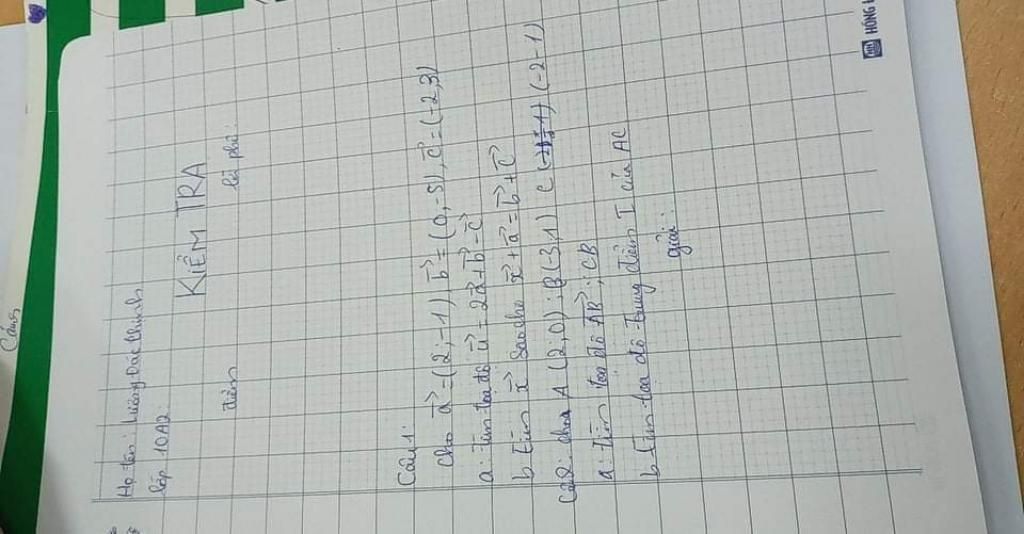 Cảng
Họ tên: Lường Đắc Thịnh
lớp 10A2
KIỂM TRA
điểm lời phê:
Câu 1:
Cho a→ = (2; -1), b→ = (0, -5), c→ = (-2,3)
a. Tìm toạ độ u→ = 2a→ + b→ - c→
b Tìm x→ sao cho x→ + a→ = b→ + c→
Câu 2: cho A (2,0); B(3,1) C (-2-1)
a. tìm toạ độ AB→; CB
b tìm toạ độ trung điểm I của AC
giải:
HỒNG